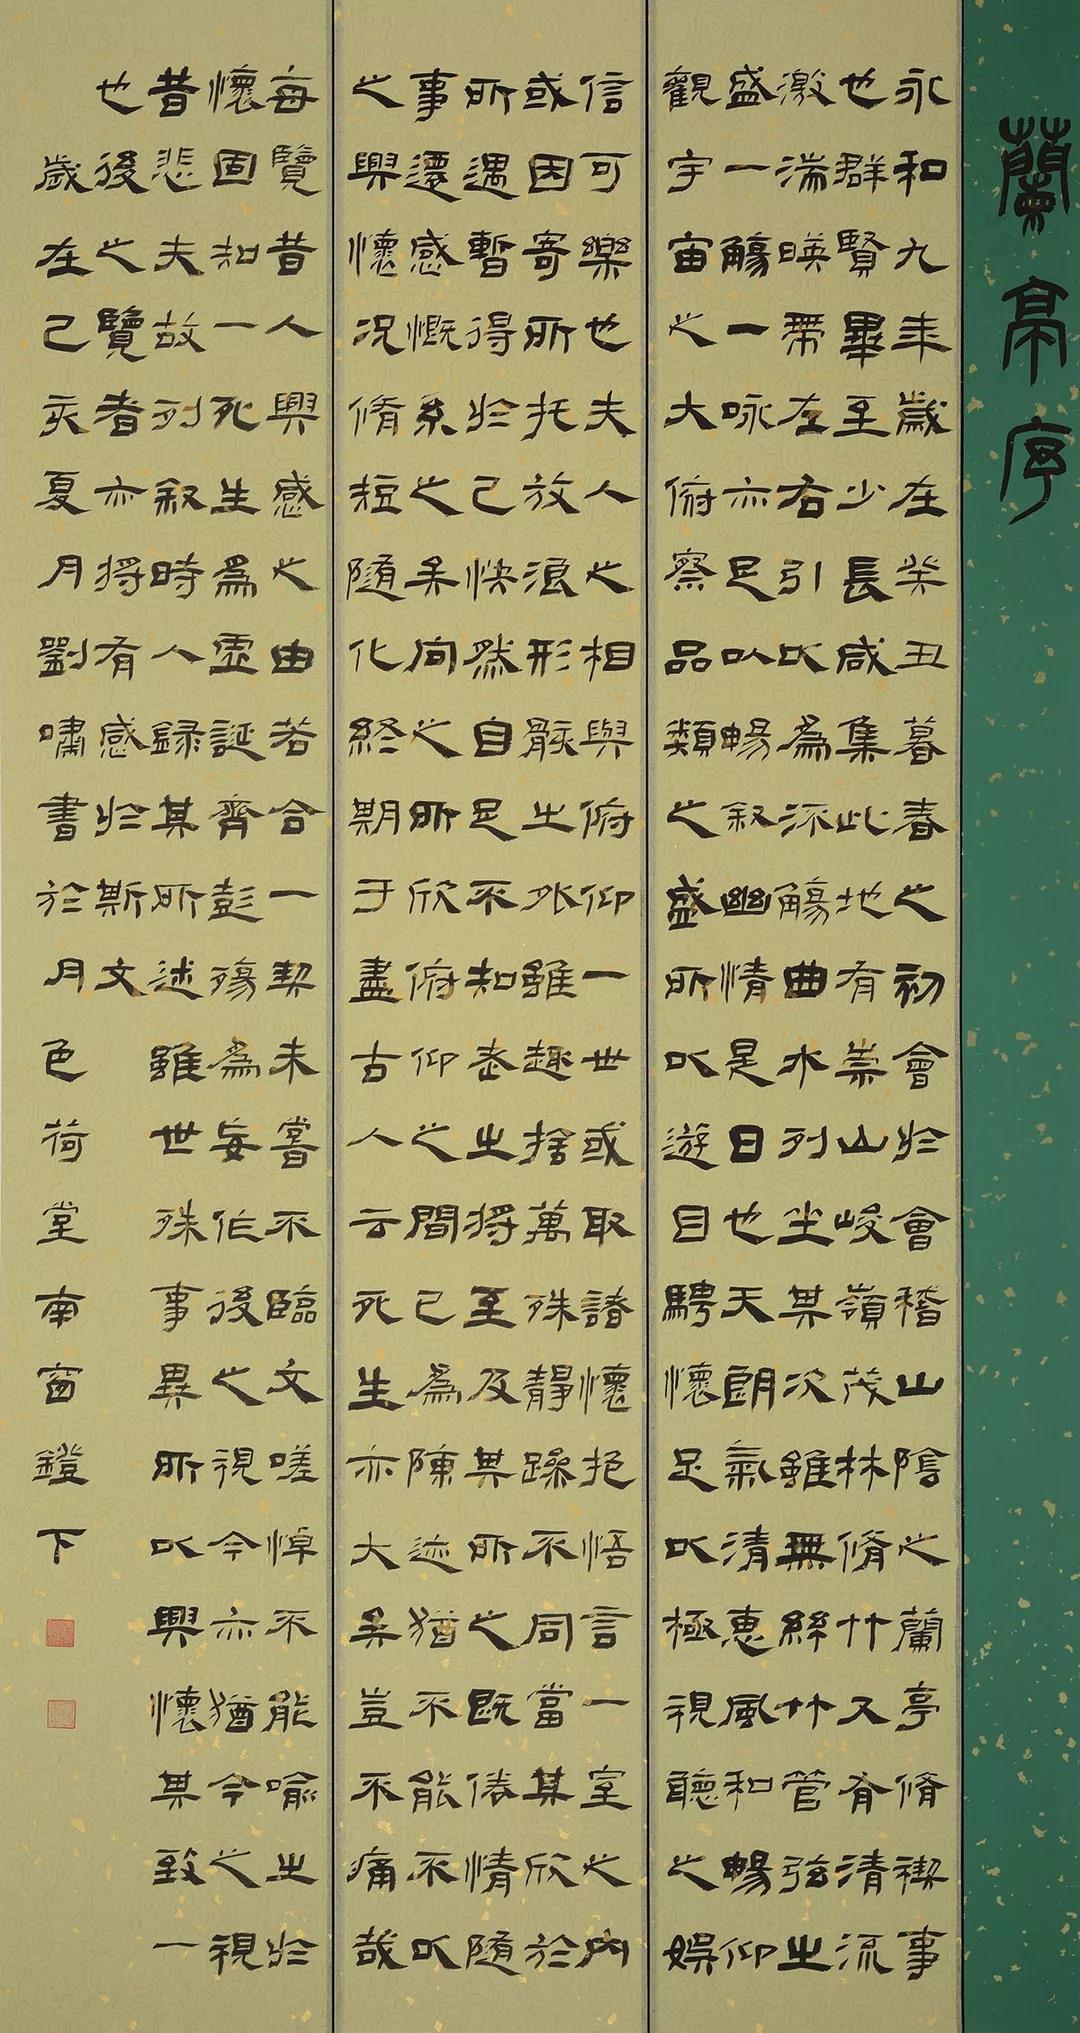 蘭亭序
永和九年歲在癸丑暮春之初會於會稽山陰之蘭亭脩禊事
也群賢畢至少長咸集此地有崇山峻嶺茂林脩竹又有清流
激湍暎帶左右引以為流觴曲水列坐其次雖無絲竹管弦之
盛一觴一咏亦足以暢叙幽情是日也天朗氣清惠風和暢仰
觀宇宙之大俯察品類之盛所以遊目騁懷足以極視聽之娛
信可樂也夫人之相與俯仰一世或取諸懷抱悟言一室之內
或因寄所托放浪形骸之外雖趣捨萬殊靜躁不同當其欣於
所遇暫得於己快然自足不知老之將至及其所之既倦情隨
事遷感慨系之矣向之所欣俯仰之間已為陳迹猶不能不以
之興懷况脩短隨化終期于盡古人云死生亦大矣豈不痛哉
每覽昔人興感之由若合一契未嘗不臨文嗟悼不能喻之於
懷固知一死生為虛誕齊彭殤為妄作後之視今亦猶今之視
昔悲夫故列叙時人錄其所述雖世殊事異所以興懷其致一
也後之覽者亦將有感於斯文
歲在己亥夏月劉嘯書於月色荷堂南窗鐙下